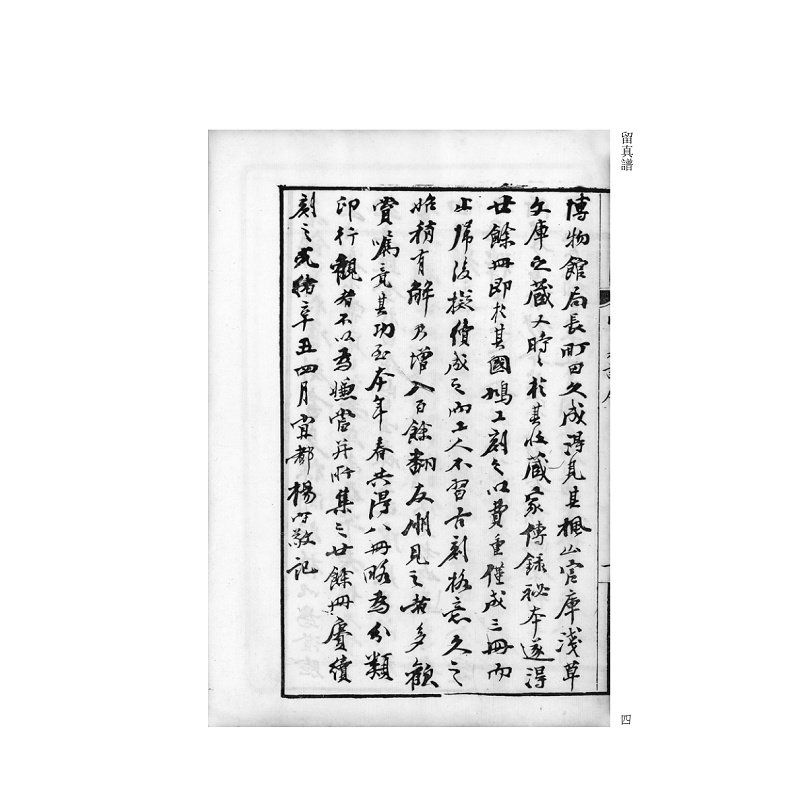 留真譜
博物館局長町田久成得見其楓山官庫淺草
文庫之藏又時時於其收藏家傳錄祕本遂得
廿餘冊即於其國鳩工刻之以費重僅成三冊而
止歸後擬續成之而工人不習古刻格意久之
始稍有解乃增入百餘翻友朋見之者多歡
賞囑竟其功至本年春共得八冊略為分類
印行觀者不以為嫌當并所集之廿餘冊賡續
刻之光緒辛丑四月宜都楊守敬記
四